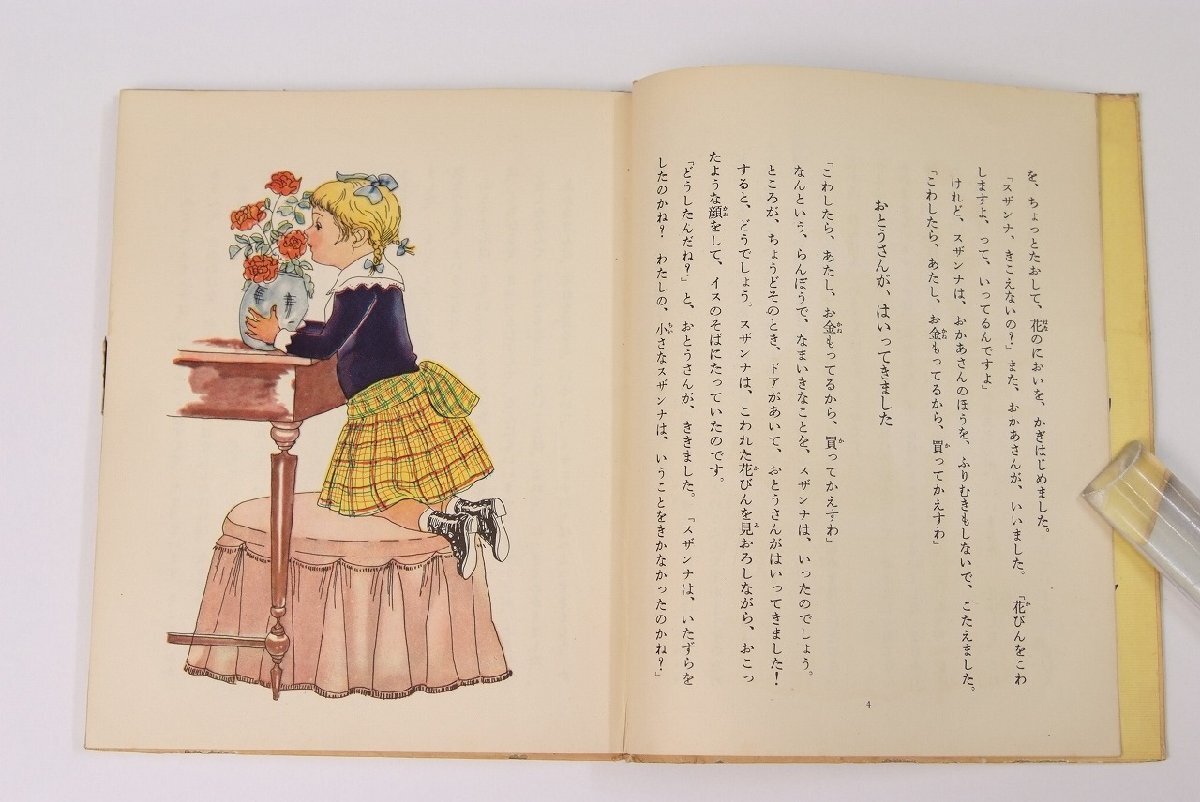 を、ちょっとたおして、花のにおいを、かぎはじめました。
「スザンナ、きこえないの？」また、おかあさんが、いいました。「花びんをこわ
しますよ、って、いってるんですよ」
けれど、スザンナは、おかあさんのほうを、ふりむきもしないで、こたえました。
「こわしたら、あたし、お金もってるから、買ってかえすわ」
おとうさんが、はいってきました
「こわしたら、あたし、お金もってるから、買ってかえすわ」
なんという、らんぼうで、なまいきなことを、スザンナは、いったのでしょう。
ところが、ちょうどそのとき、ドアがあいて、おとうさんがはいってきました！
すると、どうでしょう。スザンナは、こわれた花びんを見おろしながら、おこっ
たような顔をして、イスのそばにたっていたのです。
「どうしたんだね？」と、おとうさんが、ききました。「スザンナは、いたずらを
したのかね？ わたしの、小さなスザンナは、いうことをきかなかったのかね？」
4